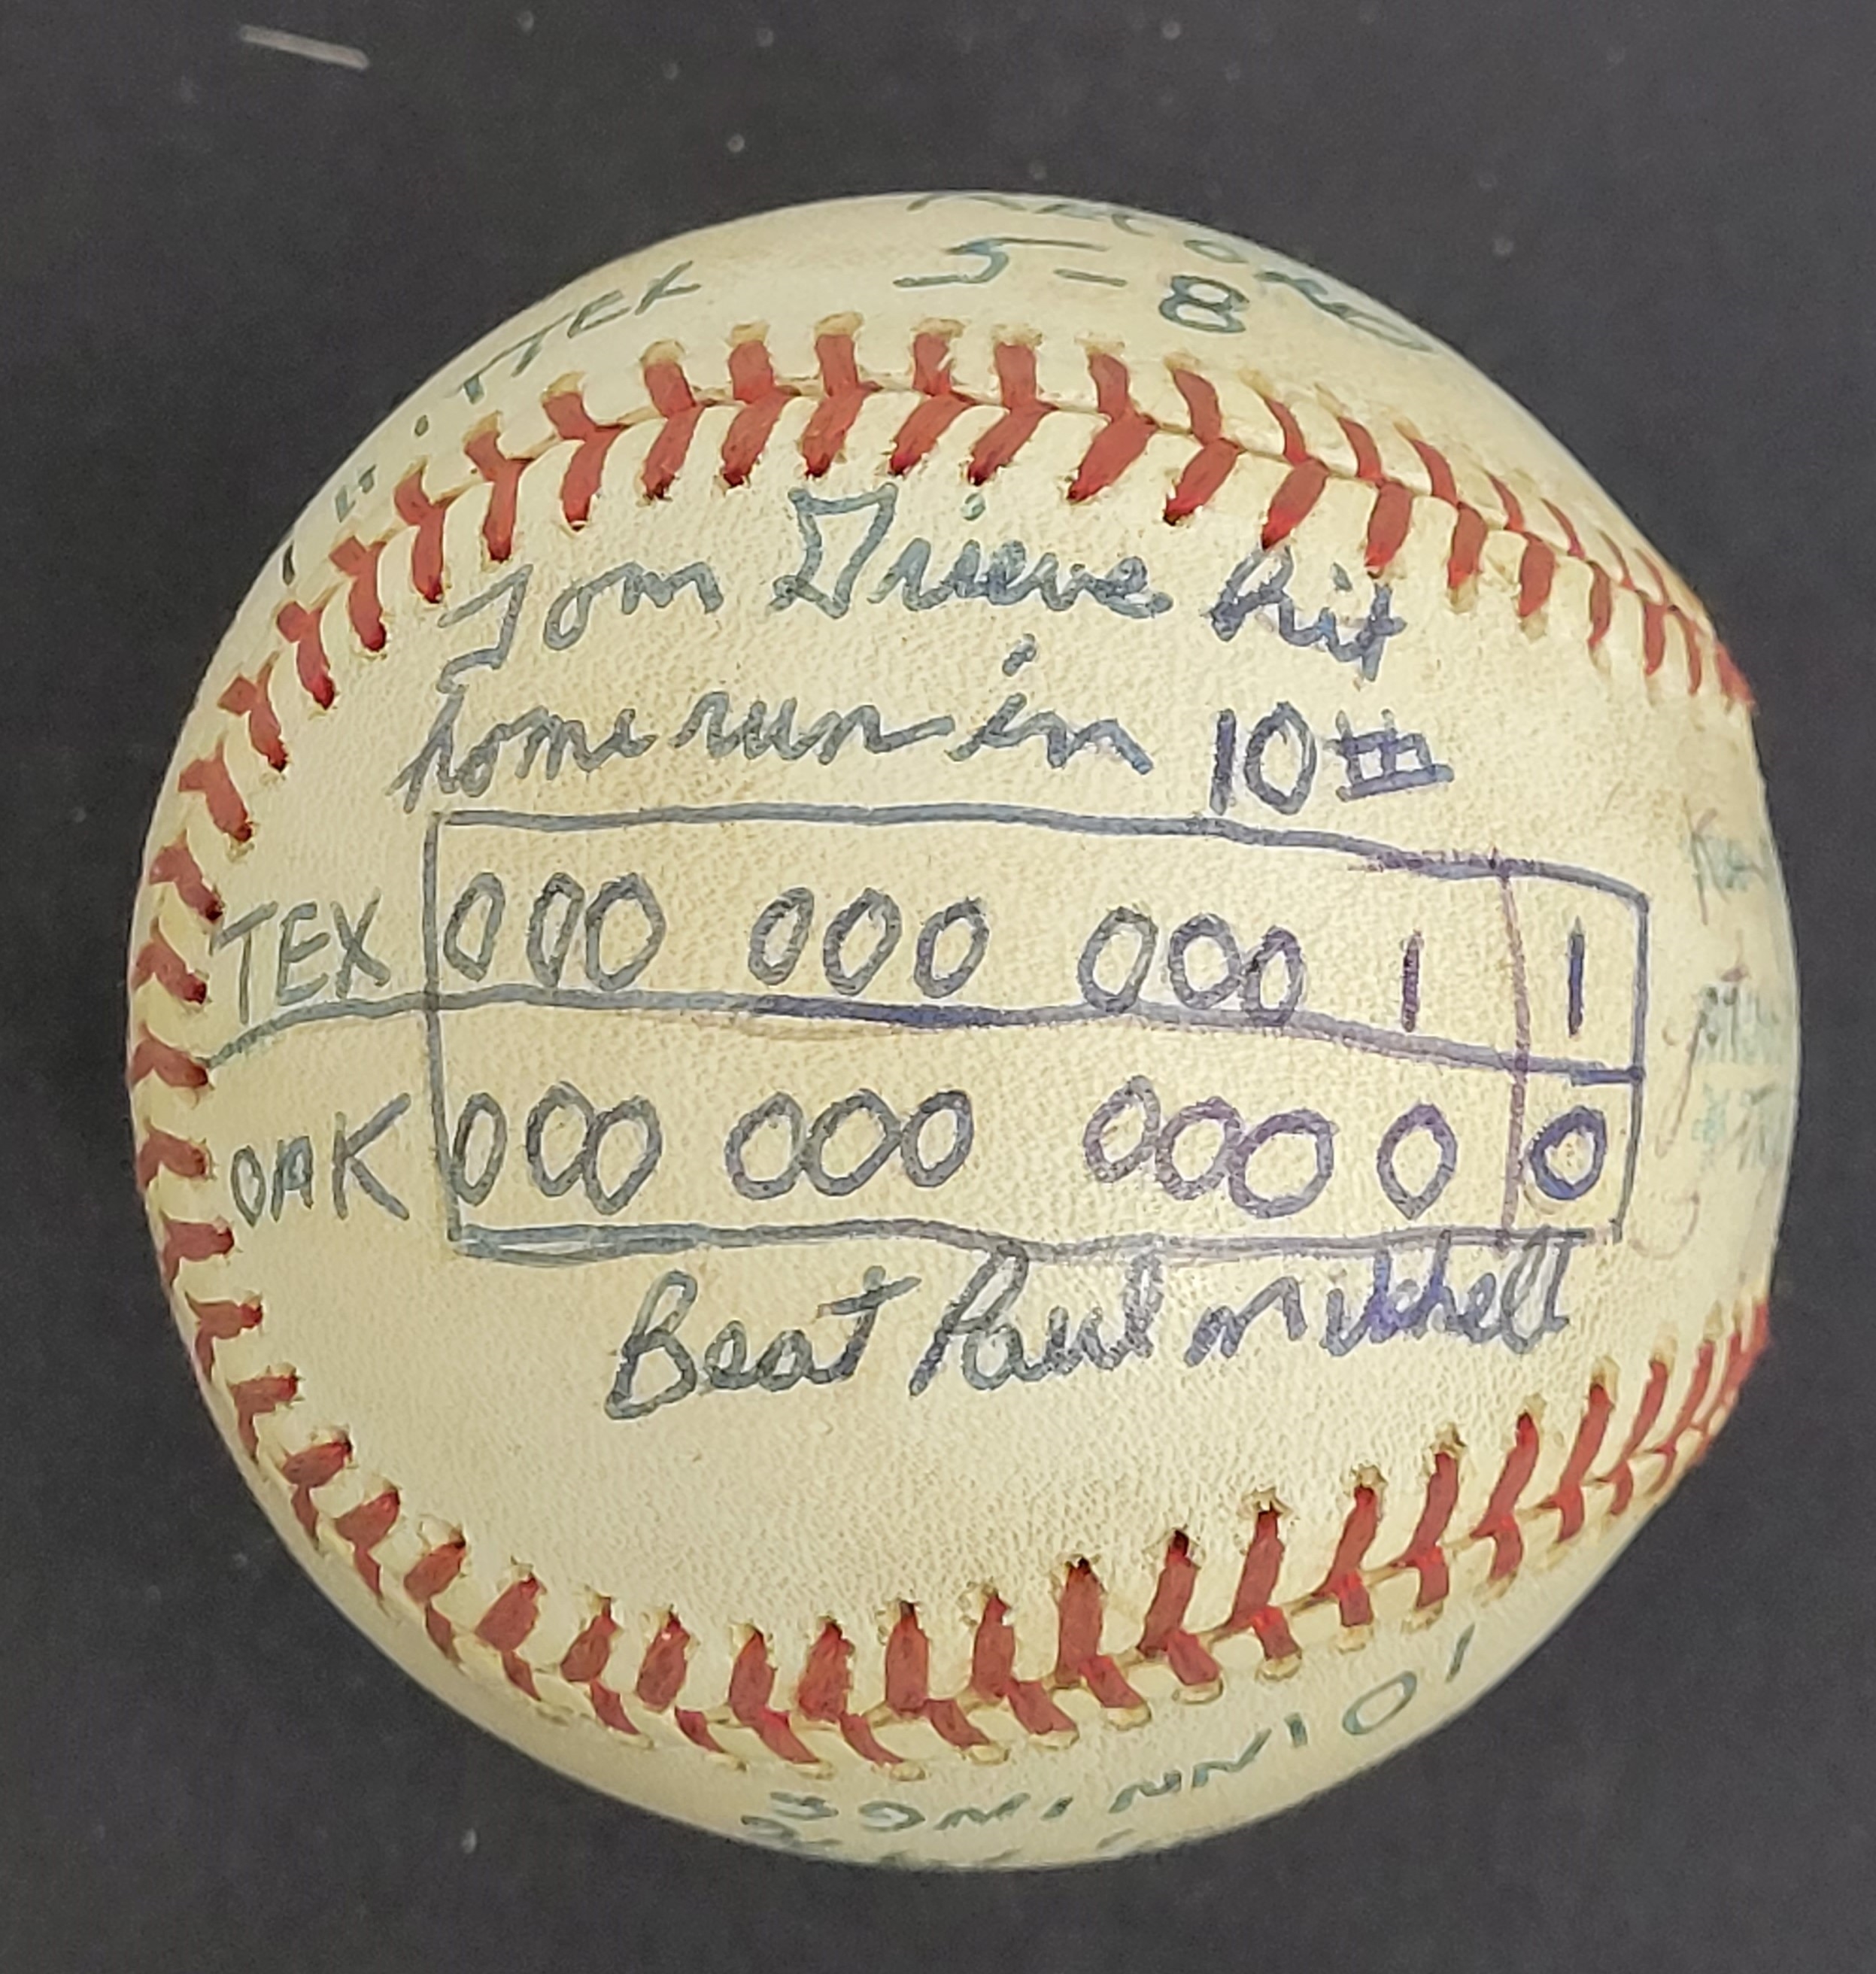 TEX
5-8
Tom Grieve hit
home run in 10th
TEX 000 000 000 1 1
OAK 000 000 000 0 0
Beat Paul Mitchell